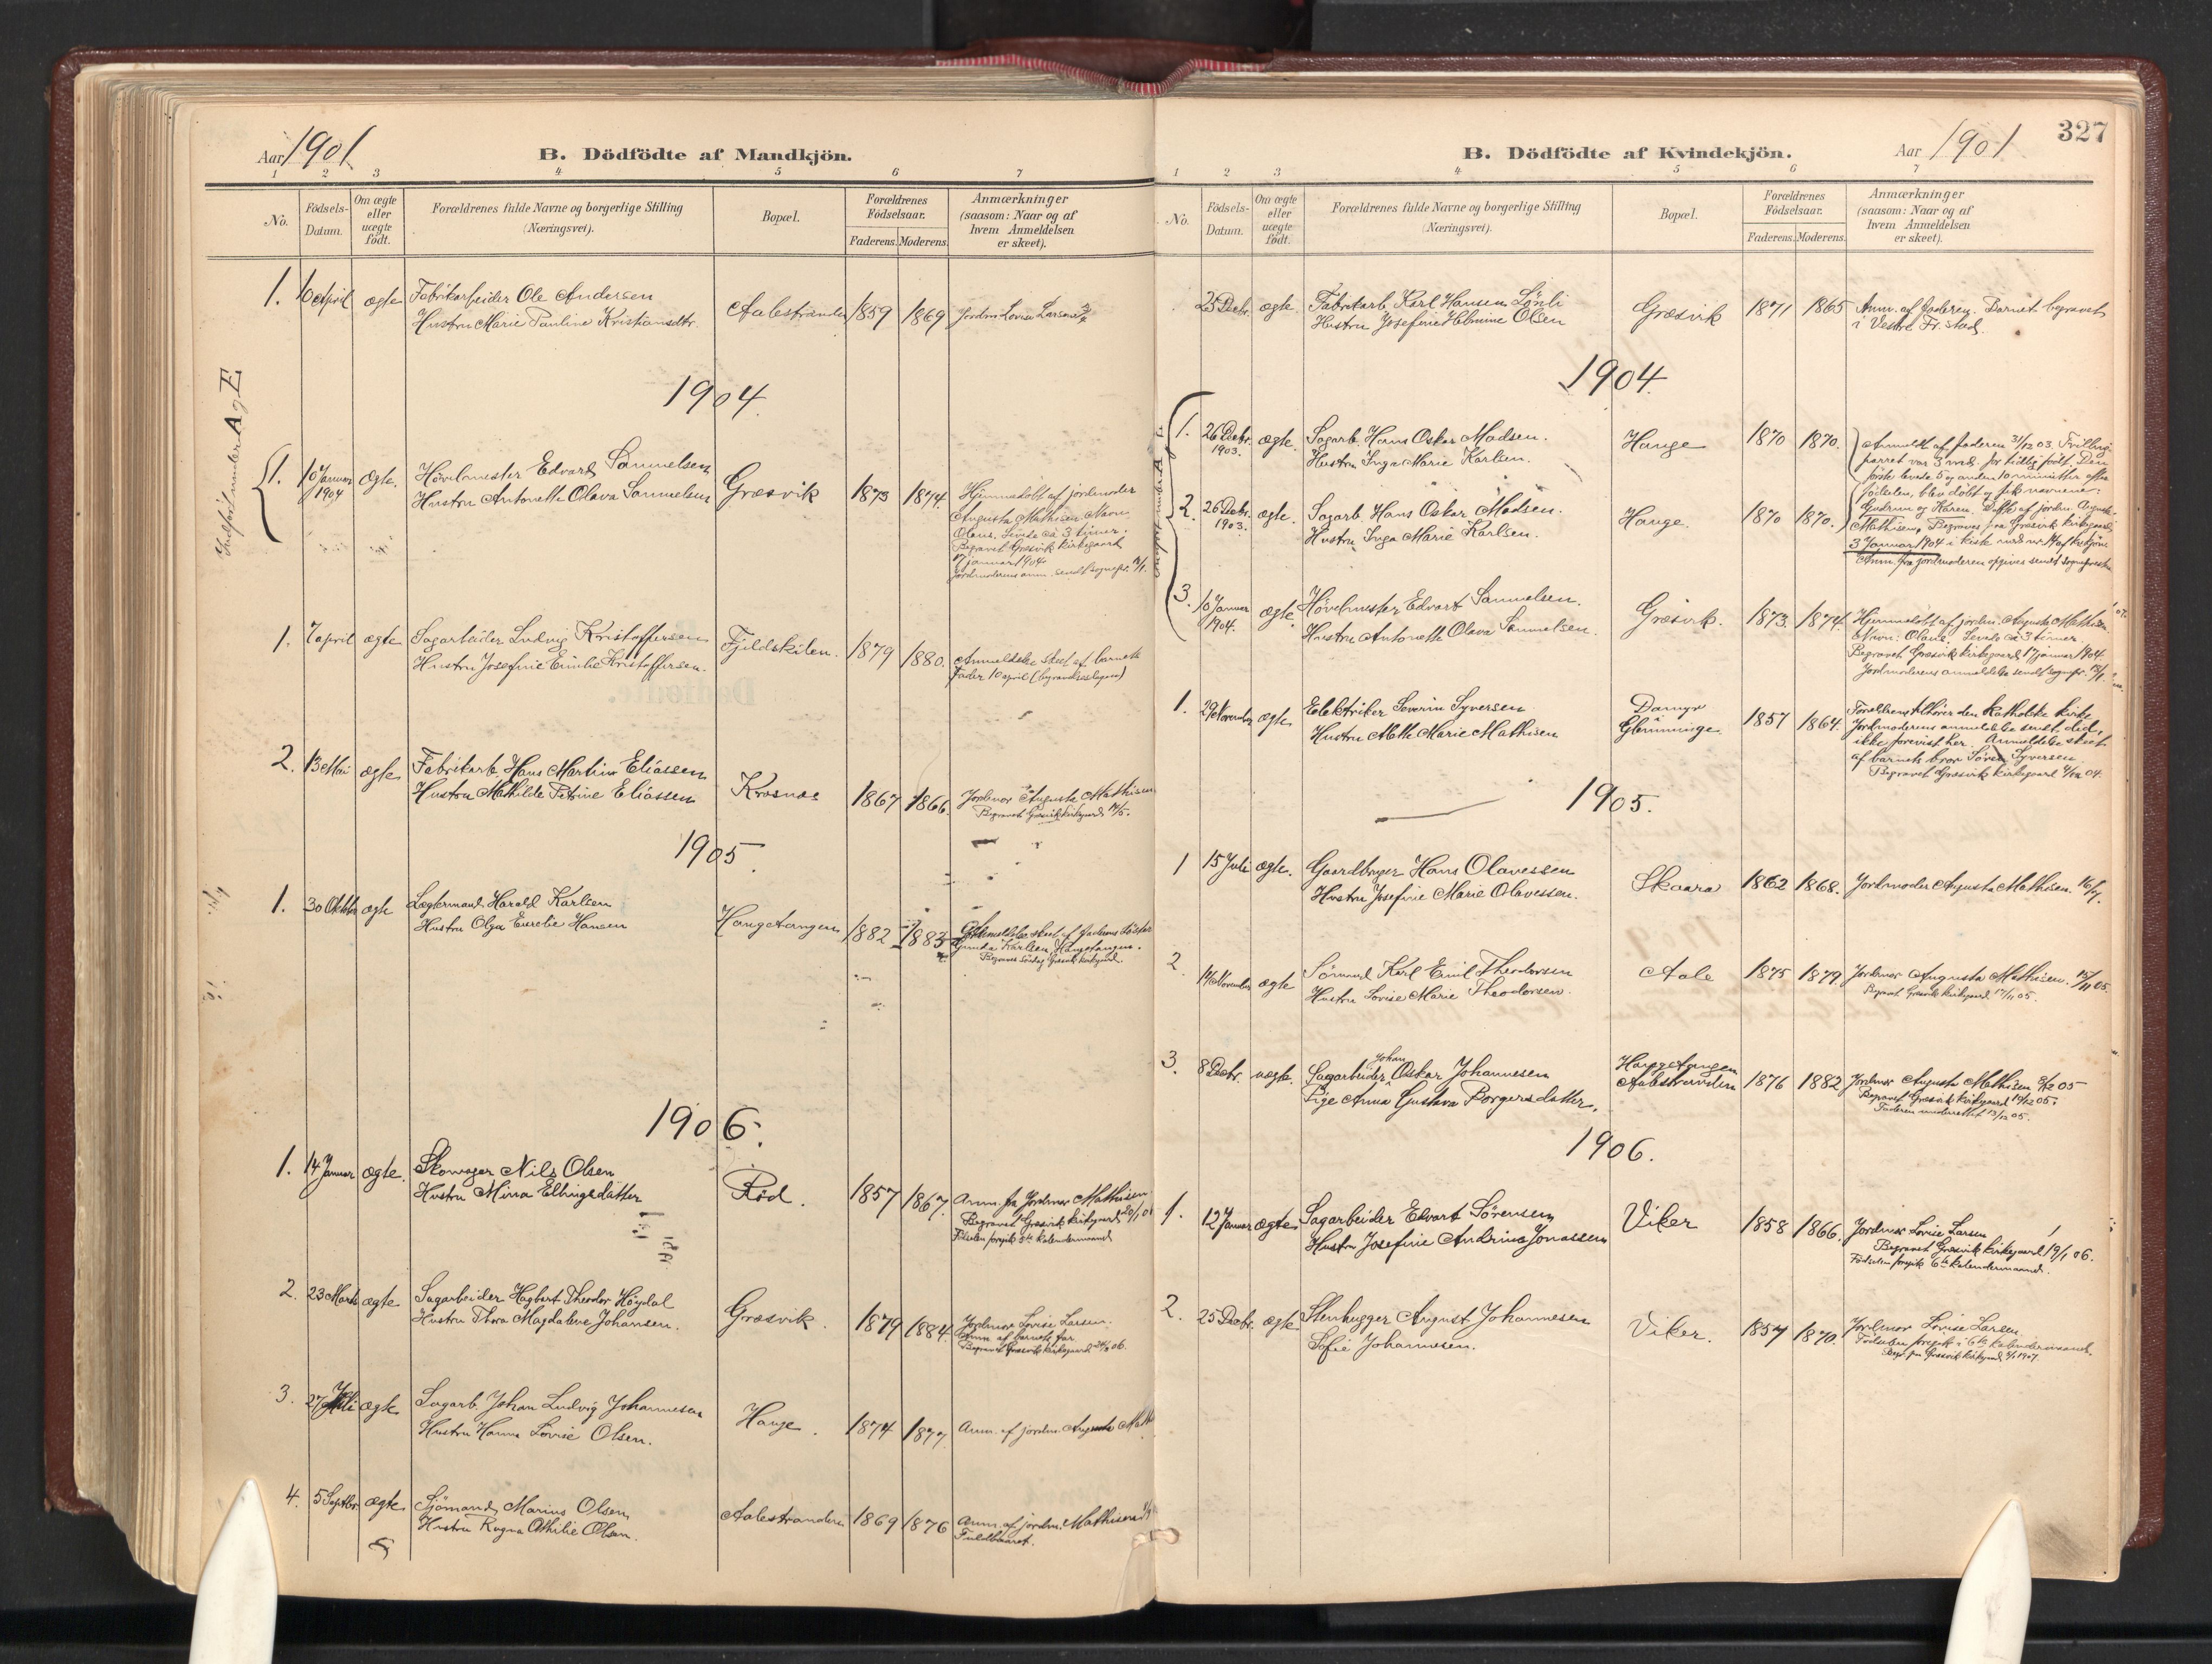 Aar 1901
B. Dödfödte af Mandkjön.
1 2 3 4 5 6 7
No.
Födsels-Datum.
Om ægte eller uægte født.
Forældrenes fulde Navne og borgerlige Stilling (Næringsvei).
Bopæl.
Forældrenes Födselsaar.
Faderens. Moderens.
Anmærkninger (saasom: Naar og af hvem Anmeldelsen er skeet).
1. 10 April ægte Fabrikarbeider Ole Andersen Aalestranden 1859 1869 Jordm. Lovise Larsen
Hustru Marie Pauline Kristiansdtr.
1904.
Indført under A og E
1. 10 Januar 1904 Ægte. Høvelmester Edvard Samuelsen Græsvik 1873 1874.
Hustru Antonette Olava Samuelsen
Hjemmedøbt af jordmoder
Augusta Mathisen. Navn:
Olaus. Levede ca 3 timer.
Begravet Græsvik kirkegaard
17 januar 1904.
Jordmoderens anm. sendt sognepr.
1. 7 april ægte Sagarbeider Ludvig Kristoffersen Fjeldskilen. 1879 1880.
Hustru Josefine Emilie Kristoffersen.
Anmeldelse skeet af barnets
fader 10 april (begravelsesdagen)
2. 13 Mai ægte Fabrikarb. Hans Martin Eliassen Krosnæs 1867 1866.
Hustru Mathilde Petrine Eliassen
Jordmor Augusta Mathisen
Begravet Græsvik kirkegaard 19/5.
1905.
1. 30 Oktbr ægte Lægtermand Harald Karlsen Haugetangen 1882 1883
Hustru Olga Hansen
Anmeldelse skeet af faderens søster
Gunda Karlsen, Haugetangen.
Begraves Græsvik kirkegaard.
1906.
1. 14 Januar ægte. Skomager Nils Olsen Rød. 1857 1867.
Hustru Mina Ellingsdatter
Anm. fra Jordmor Mathisen
Begravet Græsvik kirkegaard 20/1 06
Fødselen foregik 8de kalendermaaned
2. 23 Marts ægte Sagarbeider Hagbart Theodor Høydal Græsvik. 1879 1884.
Hustru Thora Magdalene Johansen.
Jordmor Lovise Larsen.
Anm. af barnets far
Begravet Græsvik kirkegaard 06.
3. 27 Juli ægte Sagarb. Johan Ludvig Johannesen Hauge. 1874 1877 Anm. af jordm. Augusta
Hustru Hanna Lovise Olsen.
4. 5 Septbr. ægte Sjömand Marius Olsen Aalestranden 1869 1876 Anm. af jordm. Mathisen
Hustru Ragna Othilie Olsen. Fuldbaaret.
B. Dödfödte af Kvindekjön.
Aar 1901
327
1 2 3 4 5 6 7
No.
Födsels-Datum.
Om ægte eller uægte födt.
Forældrenes fulde Navne og borgerlige Stilling (Næringsvei).
Bopæl.
Forældrenes Födselsaar.
Faderens. Moderens.
Anmærkninger (saasom: Naar og af hvem Anmeldelsen er skeet).
25 Decbr. ægte Fabrikarb. Karl Hansen Lönli Græsvik 1871 1865 Anm. af faderen. Barnet begravet
Hustru Josefine Helmine Olsen i Vestre Fr.stad.
1904.
1. 26 Decbr. 1903. ægte. Sagarb. Hans Oskar Madsen. Hauge 1870 1870.
Hustru Inga Marie Karlsen.
2. 26 Decbr. 1903. ægte. Sagarb. Hans Oskar Madsen. Hauge. 1870 1870.
Hustru Inga Marie Karlsen.
Anmeldt af faderen 31/12 03. Tvilling-
parret var 3 mnd. for tidlig født. Den
første levede 5 og anden 10 minutter efter
fødselen, blev døbt og fik navnene:
Gudrun og Karen. Døbt af jordm. Auguste
Mathisen. Begraves paa Græsvik kirkegaard
3 Januar 1904 i kiste
Anm. fra jordmoderen opgives sendt sognepresten
3. 10 Januar 1904. ægte. Høvelmester Edvart Samuelsen. Græsvik. 1873. 1874.
Hustru Antonette Olava Samuelsen.
Hjemmedøbt af jordm. Augusta Mathisen.
Navn: Levede ca 3 timer.
Begravet Græsvik kirkegaard 17 januar 1904.
Jordmoderens anmeldelse sendt sognepr.
1. 29 November ægte Elektriker Severin Syversen Damyr Glemminge. 1857 1864.
Hustru Mette Marie Mathisen
Forældrene tilhører den Katholske kirke
Jordmoderens anmeldelse sendt did,
ikke forevist her. Anmeldelse skeet
af barnets bror Søren Syversen
Begravet Græsvik kirkegaard 4/12 04.
1905.
1 15 Juli ægte. Gaardbruger Hans Olavessen Skaara 1862 1868. Jordmoder Augusta Mathisen. 16/7.
Hustru Josefine Marie Olavessen.
2. 14 November ægte Sömand Karl Emil Theodorsen Aale 1875 1879. Jordmor Augusta Mathisen. 15/11 05.
Hustru Lovise Marie Theodorsen. Begravet Græsvik kirkegaard 17/11 05.
3. 8 Decbr. uægte. Sagarbeider Johan Oskar Johannesen Haugetangen 1876 1882 Jordmor Augusta Mathisen 05
Pige Anna Gustava Borgersdatter. Aalestranden
Begravet Græsvik kirkegaard 05.
Faderen underrettet 13/12 05.
1906.
1. 12 Januar ægte Sagarbeider Edvart Sörensen Viker 1858 1866. Jordmor Lovise Larsen
Hustru Josefine Andrine Jonassen
Begravet Græsvik kirkegaard 19/1 06.
Fødselen foregik 6te kalendermaaned.
2. 25 Decbr. ægte Stenhugger August Johannesen Viker. 1857 1870. Jordmor Lovise Larsen.
Sofie Johannesen.
Fødselen foregik i 6te kalendermaaned.
Begr. paa Græsvik kirkegaard 1907.